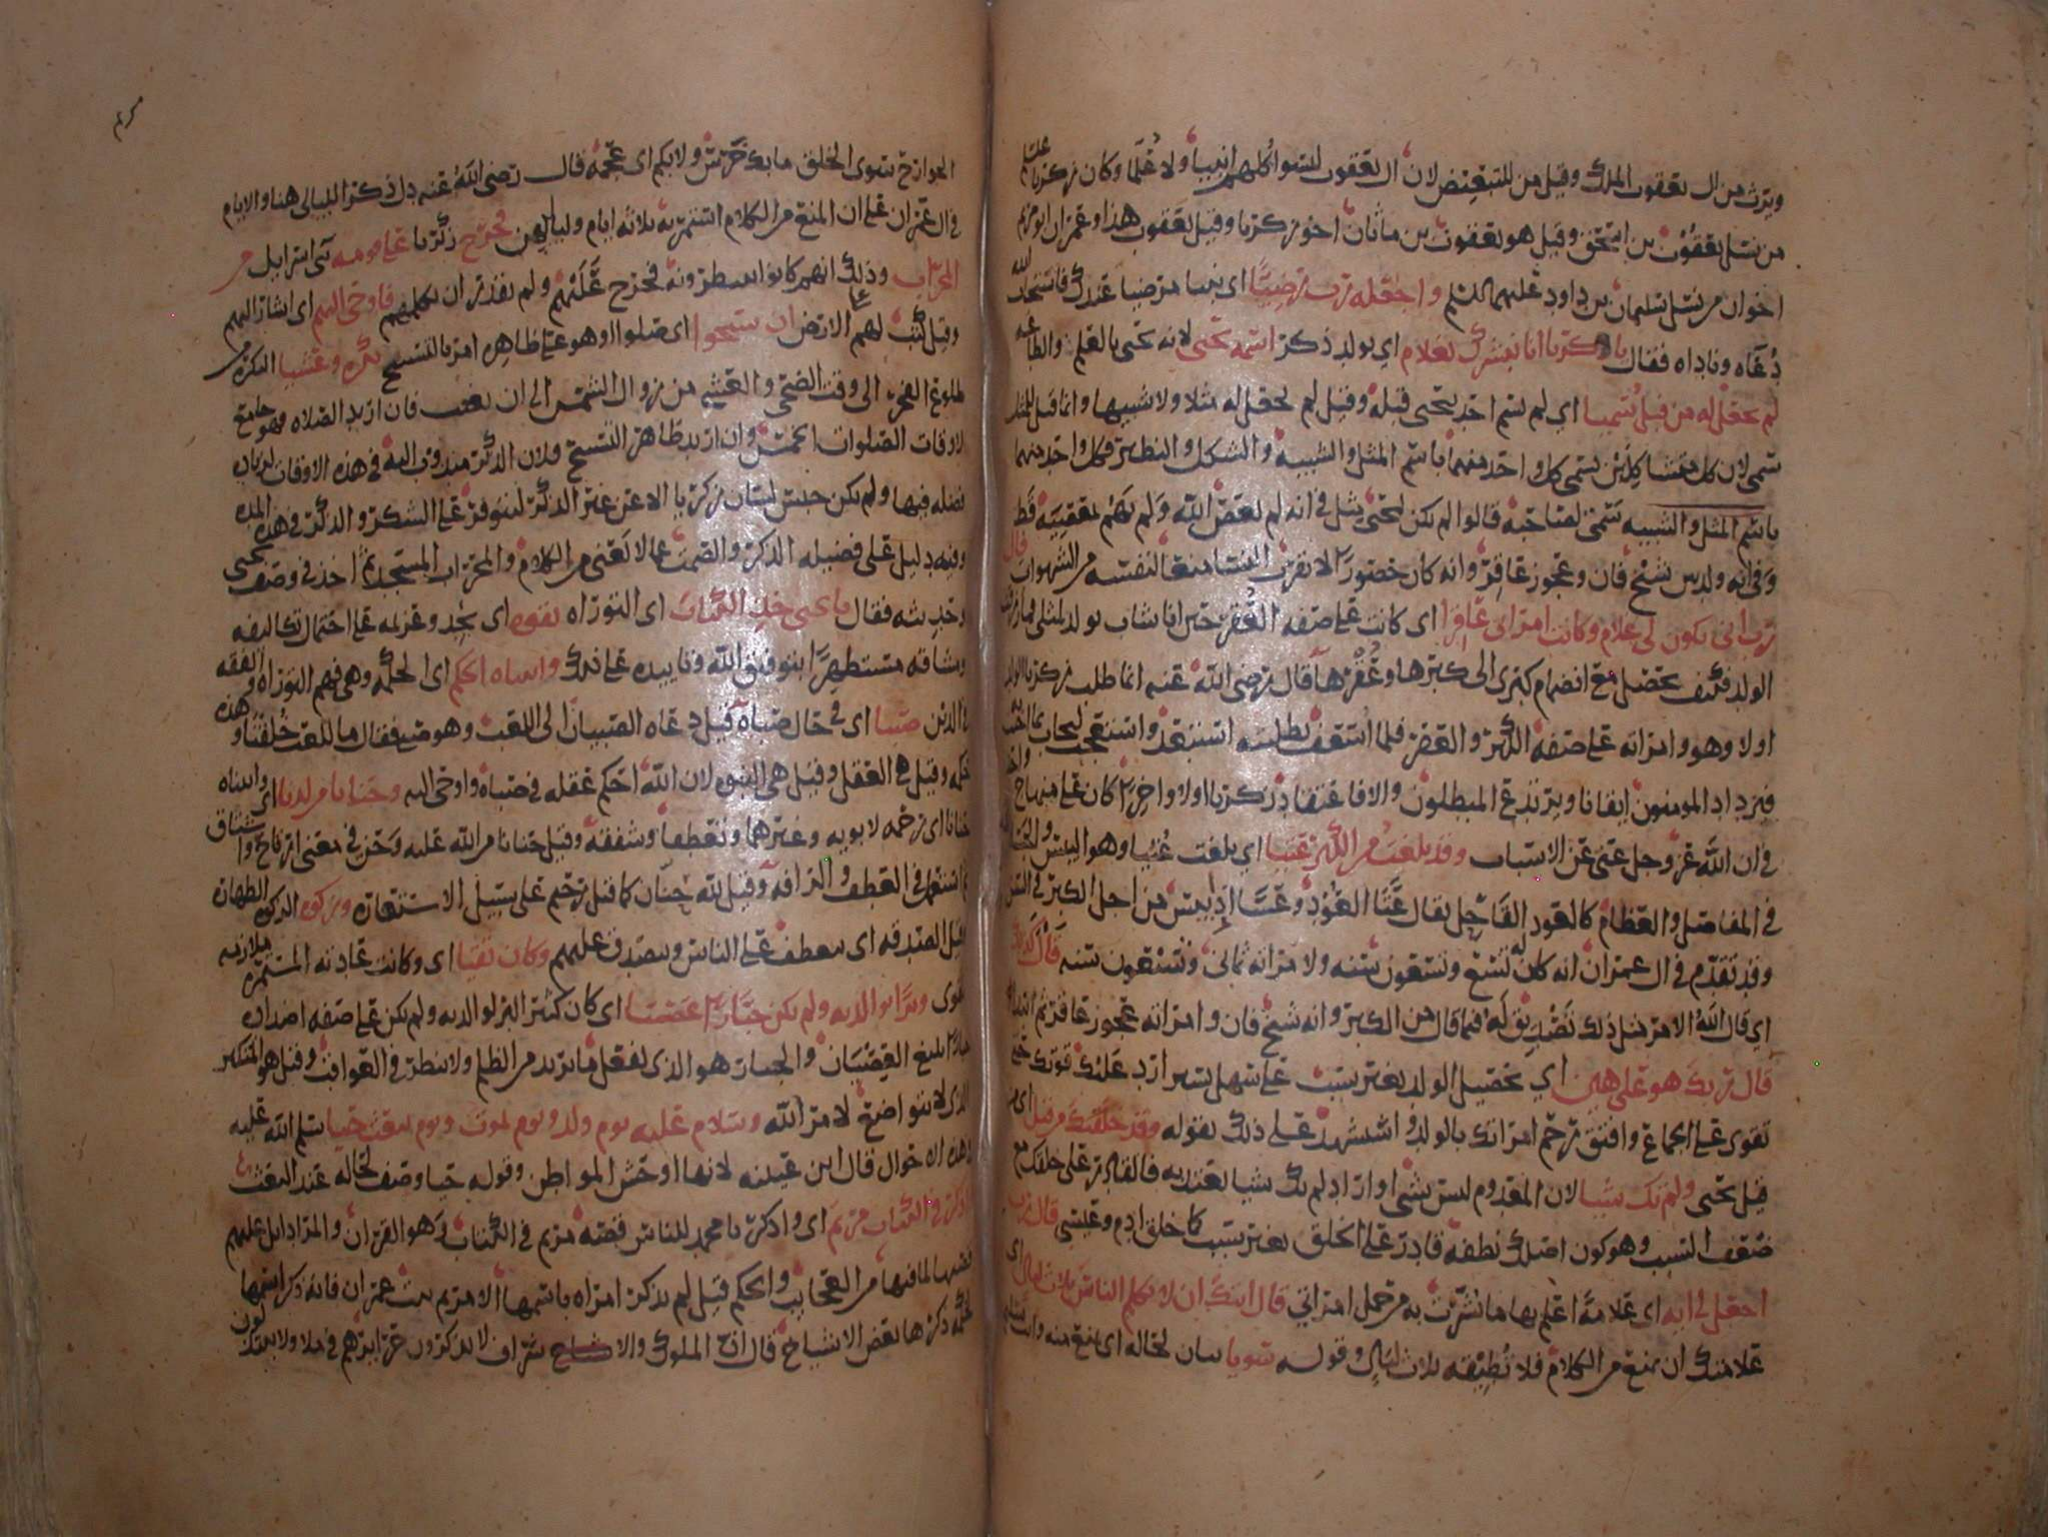 ويرث من ال يعقوب الملك وقيل من للتبعيض لان ال يعقوب ليسوا كلهم انبيا ولا علما وكان زكريا عليه
من نسل يعقوب بن اسحق وقيل هو يعقوب بن ماثان اخو زكريا وقيل يعقوب هذا وعمران ابو مريم
اخوان من نسل سليمان بن داود عليهما السلم واجعله رب رضيا اي نبيا مرضيا عندك فاستجاب الله
دعاه وناداه فقال يا زكريا انا نبشرك بغلام اي بولد ذكر اسمه يحيى لانه يحيى بالعلم والطاعه
لم نجعل له من قبل سميا اي لم يسم احد بيحيى قبله وقيل لم نجعل له مثلا ولا شبيها وانما قيل للمثل
سمى لان كل متشاكلين يسمى كل واحد منهما باسم المثل والشبيه والشكل والنظير فكل واحد منهما
باسم المثل والشبيه يسمى لصاحبه قالوا لم يكن ليحيى مثل في انه لم يعص الله ولم يهم بمعصية قط
وفي انه ولد بين شيخ فان وعجوز عاقر وانه كان حصورا لا يقرب النسا منعا لنفسه من الشهوات قال
رب انى يكون لي غلام وكانت امراتي عاقرا اي كانت على صفه العقر حين انا شاب
الولد فكيف يحصل مع انضمام كبري الى كبرها وعقرها قال رضي الله عنه انما طلب زكريا الولد
اولا وهو وامراته على صفه الكبر والعقر فلما اسعف بطلبته استبعد واستعجب ليجاب بما اجيب به
فيزداد المومنون ايقانا ويرتدع المبطلون والا فاعتقاد زكريا اولا واخرا كان على منهاج واحد
في ان الله عز وجل غني عن الاسباب وقد بلغت من الكبر عتيا اي بلغت عتيا وهو اليبس والجساوة
في المفاصل والعظام كالعود القاحل يقال عتا العود وعسا اذا يبس من اجل الكبر في السن
وقد تقدم في ال عمران انه كان له تسع وتسعون سنه ولامراته ثماني وتسعون سنه قال كذلك
اي قال الله الامر مثل ذلك تصديق له فيما قال من الكبر وانه شيخ فان وامراته عجوز عاقر ثم ابتدا
قال ربك هو علي هين اي تحصيل الولد بغير سبب علي سهل يسير ارد عليك قوتك حتى
تقوى على الجماع وافتق رحم امراتك بالولد واستشهد على ذلك بقوله وقد خلقتك من قبل اي من
قبل يحيى ولم تك شيا لان المعدوم ليس بشي او اراد لم تك شيا يعتد به فالقادر على خلقك مع
ضعف السبب وهو كون اصلك نطفه قادر على الخلق بغير سبب كما خلق ادم وعيسى قال رب
اجعل لي ايه اي علامة اعلم بها ما بشرت به من حمل امراتي قال ايتك ان لا تكلم الناس ثلاث ليال اي
علامتك ان تمنع من الكلام فلا تطيقه ثلاث ليال وقوله سويا بيان لحاله اي يمنع منه وانت سليم
الجوارح سوى الخلق ما بك خرس ولا بكم اي عجمه قال رضي الله عنه دل ذكر الليالي هنا والايام
في ال عمران على ان المنع من الكلام استمر به ثلاثه ايام ولياليهن فخرج زكريا على قومه بني اسرايل من
المحراب وذلك انهم كانوا ينتظرونه فخرج عليهم ولم يقدر ان يكلمهم فاوحى اليهم اي اشار اليهم
وقيل كتب لهم على الارض ان سبحوا اي صلوا او هو على ظاهره امر بالتسبيح بكره وعشيا البكره من
طلوع الفجر الى وقت الضحى والعشي من زوال الشمس الى ان تغيب فان اريد الصلاه فهو جامع
لاوقات الصلوات الخمس وان اريد ظاهر التسبيح فلان الذكر مندوب اليه في هذه الاوقات لزياده
فضله فيها ولم يكن حبس لسان زكريا الا عن غير الذكر ليتوفر على الشكر والذكر في هذه المده
وفيه دليل على فضيله الذكر والصمت عما لا يعني من الكلام والمحراب المسجد ثم اخذ في وصف يحيى
وحديثه فقال يا يحيى خذ الكتاب اي التوراه بقوه اي بجد وعزيمه على احتمال تكاليفه
ومشاقه مستطهرا بتوفيق الله وتاييده على ذلك واتيناه الحكم اي الحكمه وهي فهم التوراه والفقه
في الدين صبيا اي في حال صباه قيل دعاه الصبيان الى اللعب وهو صبي فقال ما للعب خلقنا وهذه
حكمه وقيل هي العقل وقيل هي النبوه لان الله احكم عقله في صباه واوحى اليه وحنانا من لدنا اي واتيناه
حنانا اي رحمه لابويه وغيرهما وتعطفا وشفقه وقيل حنانا من الله عليه وحن في معنى ارتاح واشتاق
ثم استعمل في العطف والرافه وقيل لله حنان كما قيل رحيم على سبيل الاستعاره وزكوه الزكوه الطهاره
وقيل الصدقه اي يتعطف على الناس ويتصدق عليهم وكان تقيا اي وكانت عادته المستمره ملازمه
التقوى وبرا بوالديه ولم يكن جبارا عصيا اي كان كثير البر لوالديه ولم يكن على صفه اضداده
جبارا بليغ العصيان والجبار هو الذي يفعل ما يريد من الظلم ولا ينظر في العواقب وقيل هو المتكبر
الذي لا يتواضع لامر الله وسلام عليه يوم ولد ويوم يموت ويوم يبعث حيا سلم الله عليه
في هذه الاحوال قال ابن عيينه لانها اوحش المواطن وقوله حيا وصف لحاله عند البعث
واذكر في الكتاب مريم اي واذكر يا محمد للناس قصة مريم في الكتاب وهو القران والمراد اتل عليهم
قصتها لما فيها من العجايب والحكم قيل لم يذكر امراه باسمها الا مريم بنت عمران فانه ذكر اسمها
لحكمه ذكرها بعض الاشياخ قال ان الملوك والاشراف لا يذكرون حرايرهم في ملا ولا يبتذلون
مريم